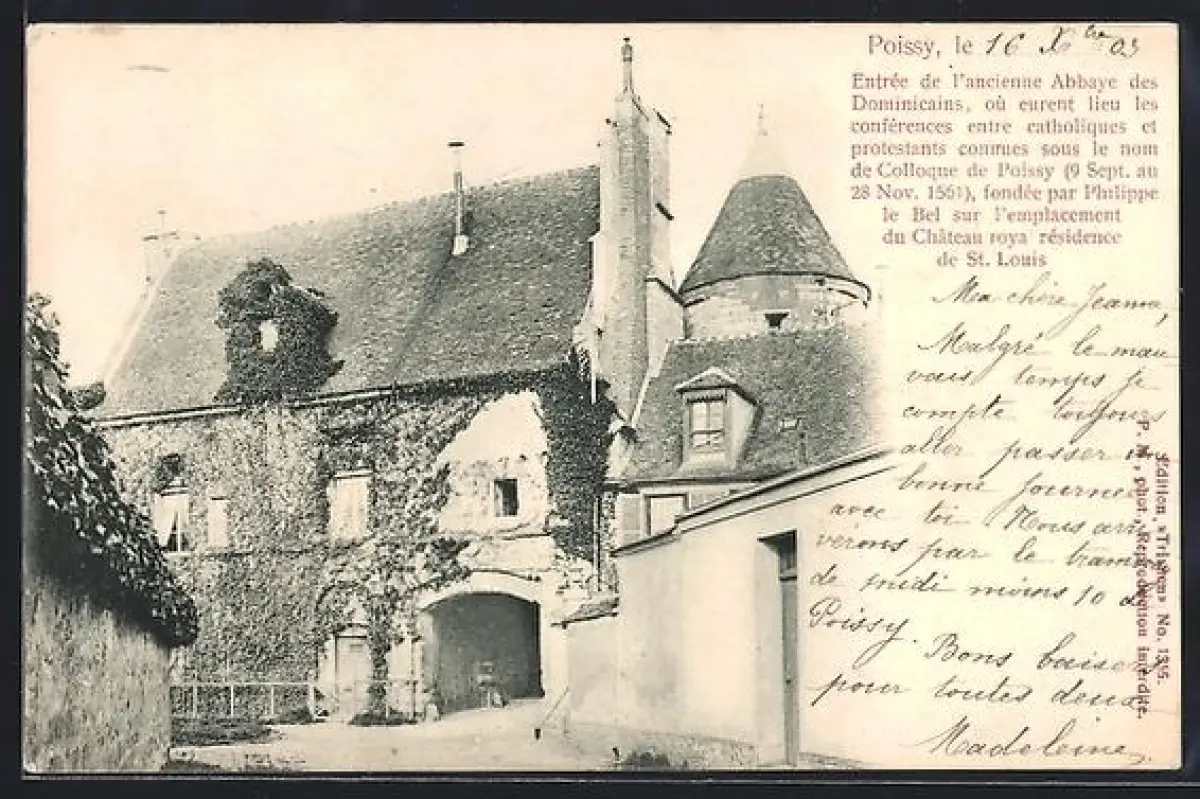 Poissy, le 16 Xbre 03
Entrée de l'ancienne Abbaye des
Dominicains, où eurent lieu les
conférences entre catholiques et
protestants connues sous le nom
de Colloque de Poissy (9 Sept. au
28 Nov. 1561), fondée par Philippe
le Bel sur l'emplacement
du Château roya résidence
de St. Louis
Ma chère Jeanne,
Malgré le mau
vais temps je
compte toujours
aller passer
bonne journée
avec toi Nous arri
verons par le tramw
de midi moins 10 de
Poissy. Bons baisers
pour toutes deux
Madeleine
Edition «Trianon» No. 1315.
P. M., phot. Reproduction interdite.